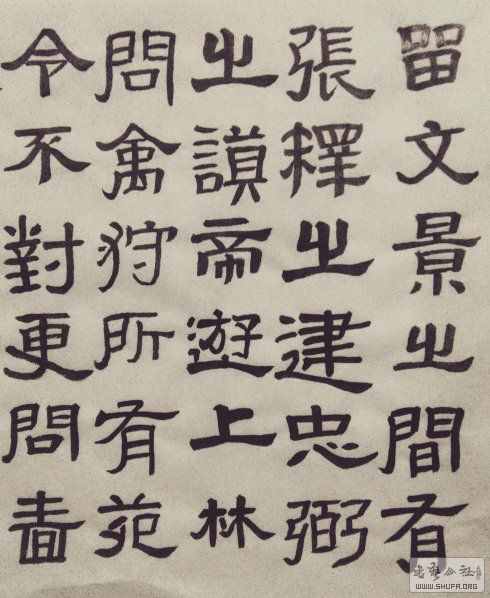 留文景之間有
張釋之建忠弼
之謨帝遊上林
問禽狩所有苑
令不對更問嗇
書藝公社
WWW.SHUFA.ORG